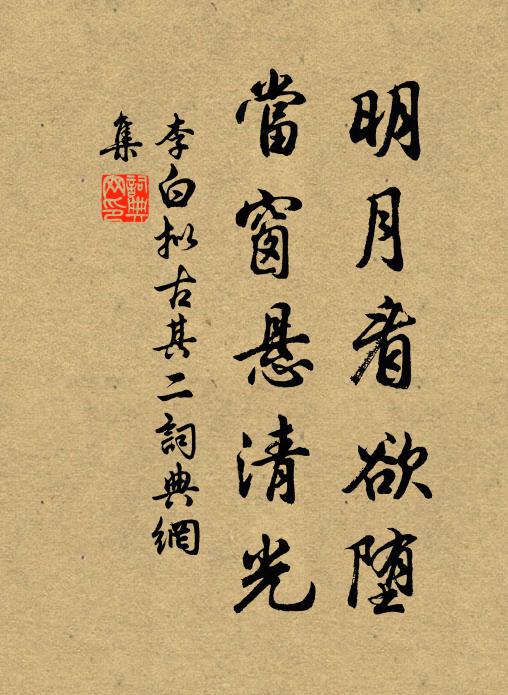 明月看欲堕
當窗悬清光
李白拟古其二詞典網
集
詞典網印